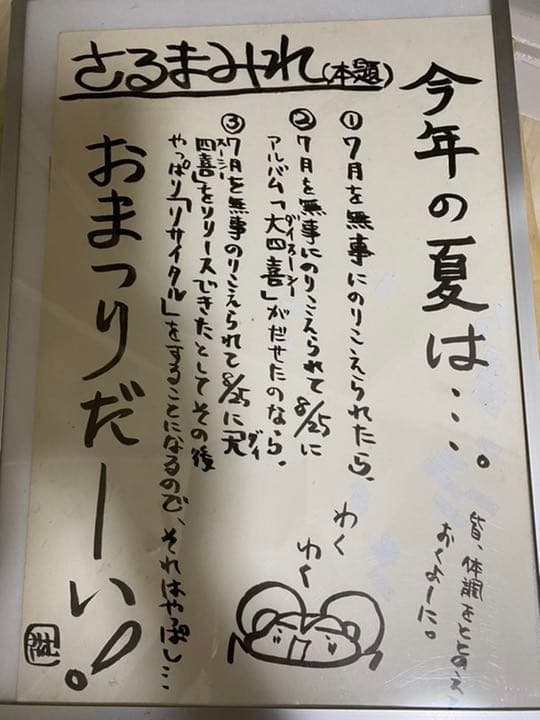 さるまみれ(本題)
今年の夏は…。
①7月を無事にのりこえられたら、
②7月を無事にのりこえられて8/25に
アルバム「大四喜」がだせたのなら、
ダイスーシー
③7月を無事のりこえられて8/25に「大
ダイ
四喜」をリリースできたとしてその後
スーシー
やっぱり「リサイクル」をすることになるので、それはやっぱし…
おまつりだーい!
わく
わく
皆、体調をととのえ
おくよーに。